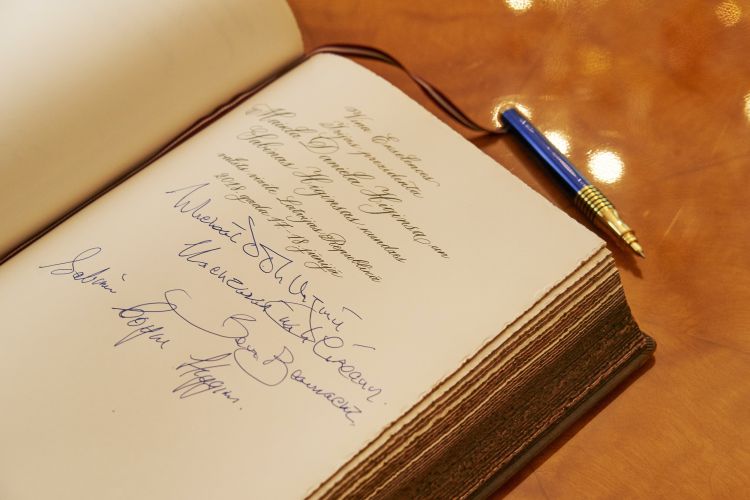 Viņa Ekselences
Īrijas prezidenta
Maikla Daniela Higinsa un
Sabīnas Higinsas kundzes
valsts vizīte Latvijas Republikā
2018. gada 17.-18. jūnijā
Micheál D Ó hUigínn
Uachtarán na hÉireann
Beir Beannacht
Sabina
Coyne
Higgins.